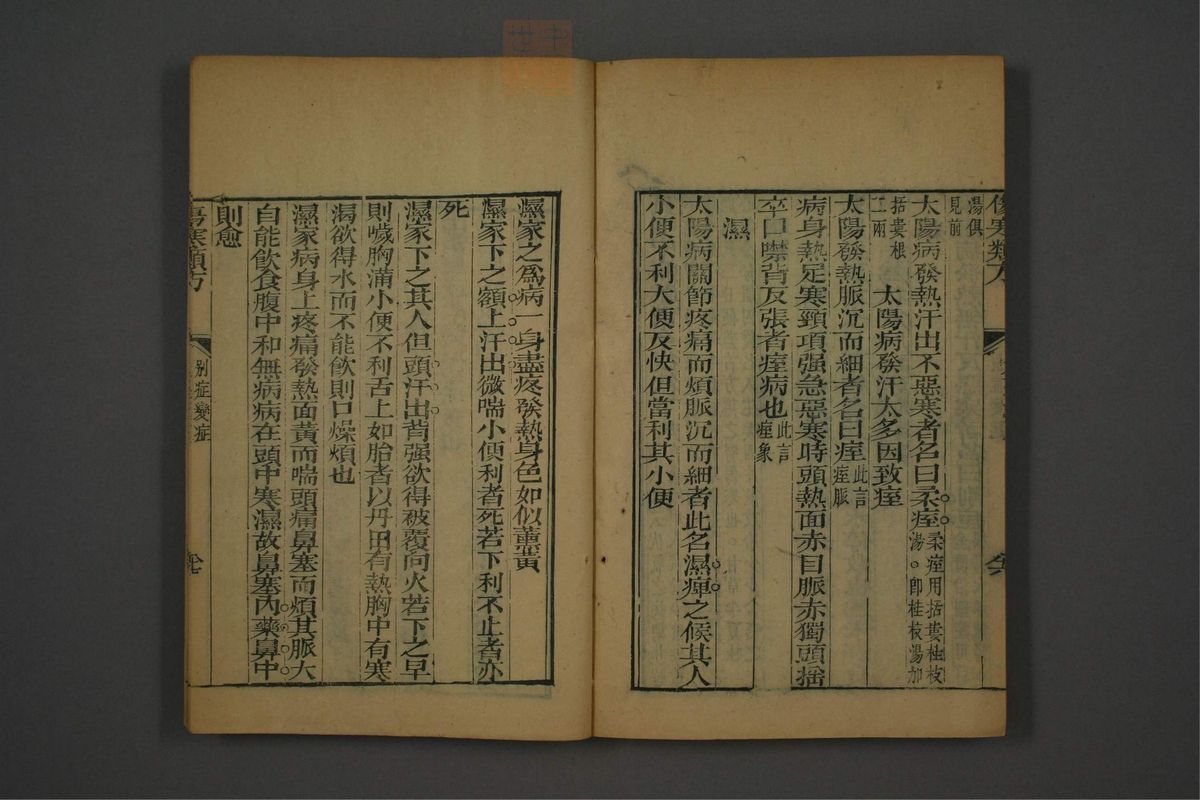 傷寒類方
湯俱
見前
太陽病發熱汗出不惡寒者名曰柔痓柔痓用括蔞桂枝
湯。即桂枝湯加
括蔞根
二兩
太陽病發汗太多因致痓
太陽發熱脈沉而細者名曰痓此言
痓脈
病身熱足寒頸項强急惡寒時頭熱面赤目脈赤獨頭搖
卒口噤背反張者痓病也此言
痓象
濕
太陽病關節疼痛而煩脈沉而細者此名濕痺之候其人
小便不利大便反快但當利其小便
濕家之為病一身盡疼發熱身色如似薰黃
濕家下之額上汗出微喘小便利者死若下利不止者亦
死
濕家下之其人但頭汗出背强欲得被覆向火若下之早
則噦胸滿小便不利舌上如胎者以丹田有熱胸中有寒
渴欲得水而不能飲則口燥煩也
濕家病身上疼痛發熱面黃而喘頭痛鼻塞而煩其脈大
自能飲食腹中和無病病在頭中寒濕故鼻塞內藥鼻中
則愈
傷寒類方
別症變症